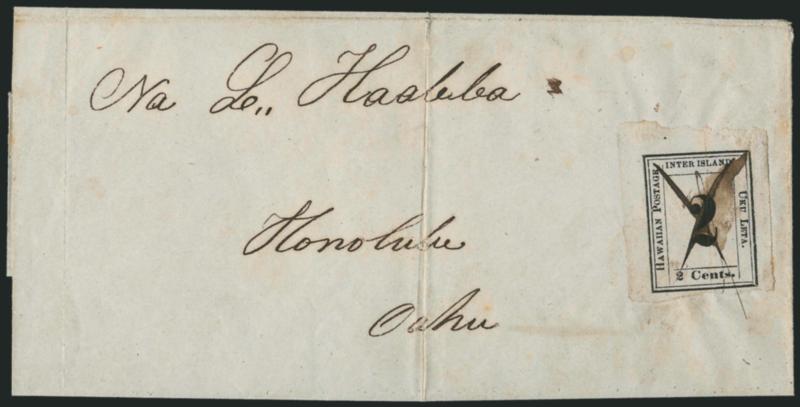 Na L.,, Haalelea
Honolulu
Oahu
INTER ISLAND
HAWAIIAN POSTAGE
UKU LETA.
2
2 Cents.